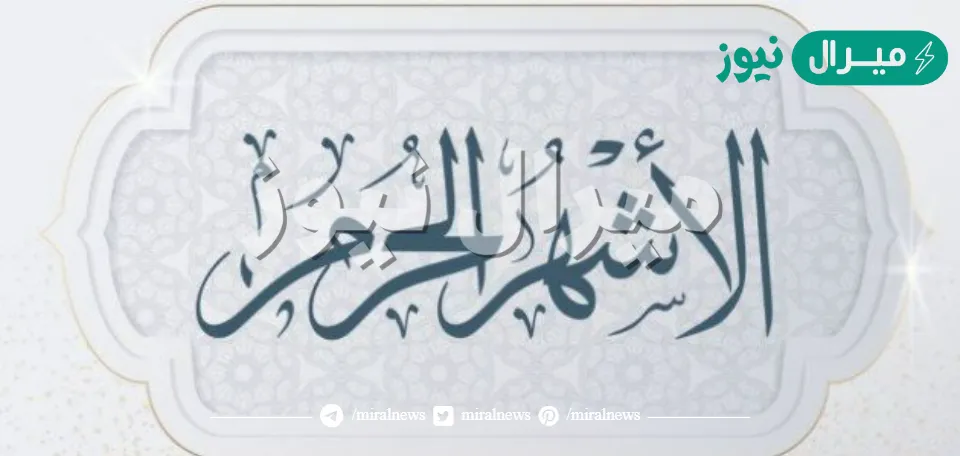 ميرال نيوز
الأشهر الحرم
ميرال نيوز
/miralnews miralnews /miralnews